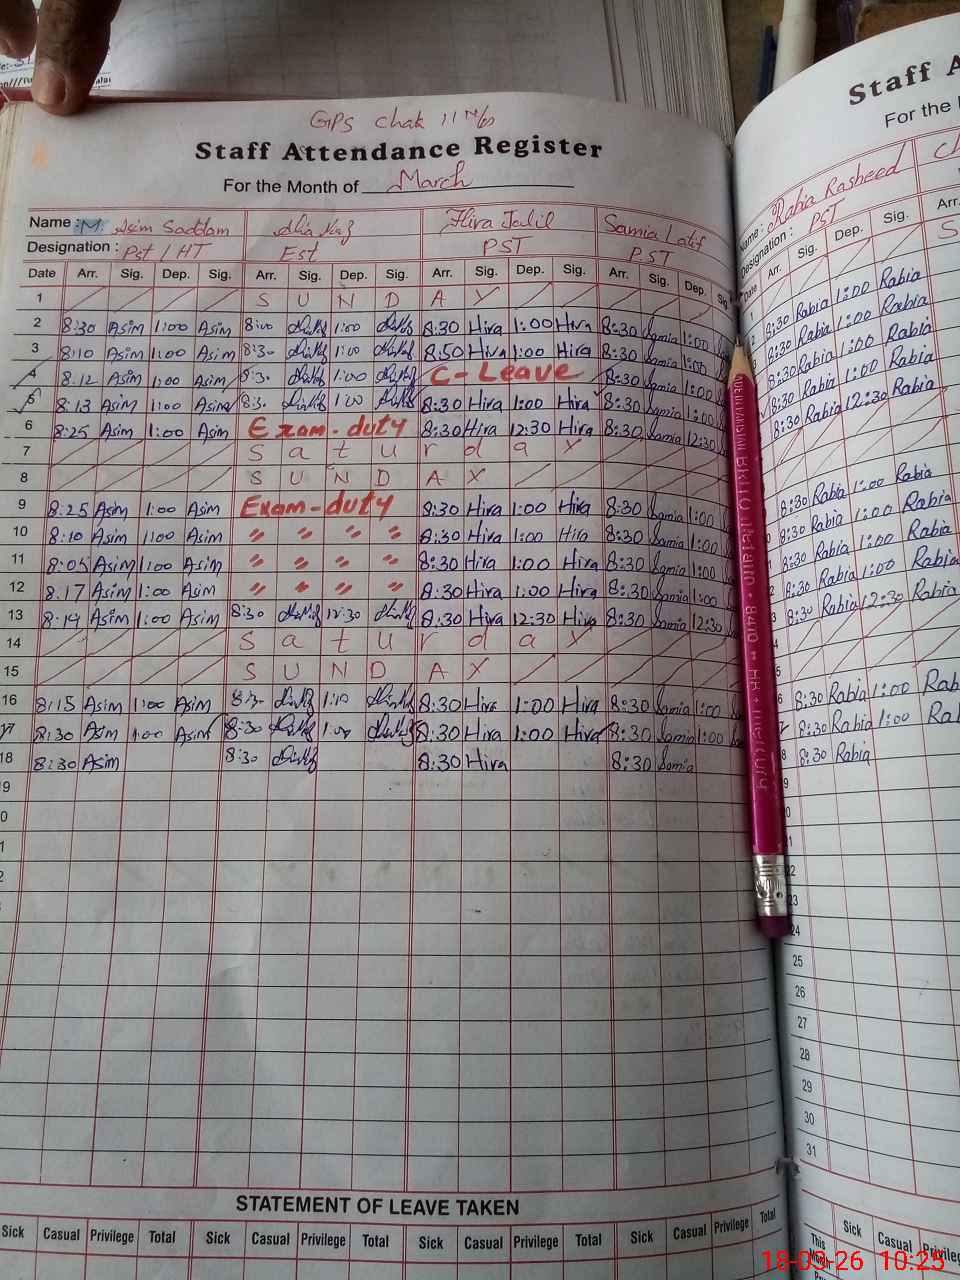 GPS Chak 11
Staff Attendance Register
For the Month of March
Name : M. Asim Saddam Hira Jalil Samia Latif
Designation : Pst / HT Est PST PST
Date Arr. Sig. Dep. Sig. Arr. Sig. Dep. Sig. Arr. Sig. Dep. Sig. Arr. Sig. Dep. Sig.
1 S U N D A Y
2 8:30 Asim 1:00 Asim 8:00 1:00 8:30 Hira 1:00 Hira 8:30 Samia 1:00
3 8:10 Asim 1:00 Asim 8:30 1:00 8:50 Hira 1:00 Hira 8:30 Samia 1:00
4 8:12 Asim 1:00 Asim 8:30 1:00 C-Leave 8:30 Samia 1:00
5 8:13 Asim 1:00 Asim 8:30 1:00 8:30 Hira 1:00 Hira 8:30 Samia 1:00
6 8:25 Asim 1:00 Asim Exam-duty 8:30 Hira 12:30 Hira 8:30 Samia 12:30
7 S a t u r d a y
8 S U N D A Y
9 8:25 Asim 1:00 Asim Exam-duty 8:30 Hira 1:00 Hira 8:30 Samia 1:00
10 8:10 Asim 1:00 Asim " " " " 8:30 Hira 1:00 Hira 8:30 Samia 1:00
11 8:05 Asim 1:00 Asim " " " " 8:30 Hira 1:00 Hira 8:30 Samia 1:00
12 8:17 Asim 1:00 Asim " " " " 8:30 Hira 1:00 Hira 8:30 Samia 1:00
13 8:19 Asim 1:00 Asim 8:30 12:30 8:30 Hira 12:30 Hira 8:30 Samia 12:30
14 S a t u r d a y
15 S U N D A Y
16 8:15 Asim 1:00 Asim 8:30 1:10 8:30 Hira 1:00 Hira 8:30 Samia 1:00
17 8:30 Asim 1:00 Asim 8:30 1:00 8:30 Hira 1:00 Hira 8:30 Samia 1:00
18 8:30 Asim 8:30 8:30 Hira 8:30 Samia
STATEMENT OF LEAVE TAKEN
Sick Casual Privilege Total Sick Casual Privilege Total Sick Casual Privilege Total Sick Casual Privilege Total
Staff A
For the
Name : Rabia Rasheed
Designation : PST
Date Arr. Sig. Dep. Sig. Arr.
8:30 Rabia 1:00 Rabia
8:30 Rabia 1:00 Rabia
8:30 Rabia 1:00 Rabia
8:30 Rabia 1:00 Rabia
8:30 Rabia 12:30 Rabia
8:30 Rabia 1:00 Rabia
8:30 Rabia 1:00 Rabia
8:30 Rabia 1:00 Rabia
8:30 Rabia 1:00 Rabia
8:30 Rabia 12:30 Rabia
8:30 Rabia 1:00 Rab
8:30 Rabia 1:00 Ra
8:30 Rabia
22
23
24
25
26
27
28
29
30
31
This Month Sick Casual Privilege
18-03-26 10:25